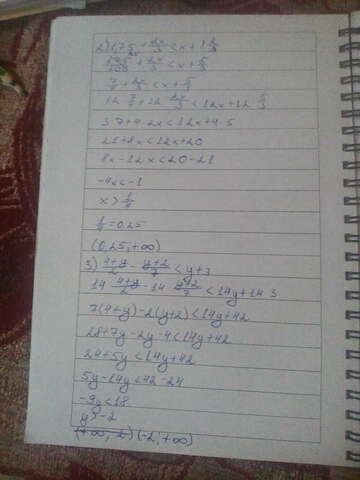 2) 1,75 + 2x/3 < x + 1 2/3
175/100 + 2x/3 < x + 5/3
7/4 + 2x/3 < x + 5/3
12 · 7/4 + 12 · 2x/3 < 12x + 12 · 5/3
3·7 + 4·2x < 12x + 4·5
21 + 8x < 12x + 20
8x - 12x < 20 - 21
-4x < -1
x > 1/4
1/4 = 0,25
(0,25, +∞)
3) 4+y/2 - y+2/7 < y + 3
14 · 4+y/2 - 14 · y+2/7 < 14y + 14·3
7(4+y) - 2(y+2) < 14y + 42
28 + 7y - 2y - 4 < 14y + 42
24 + 5y < 14y + 42
5y - 14y < 42 - 24
-9y < 18
y > -2
(-2, +∞)